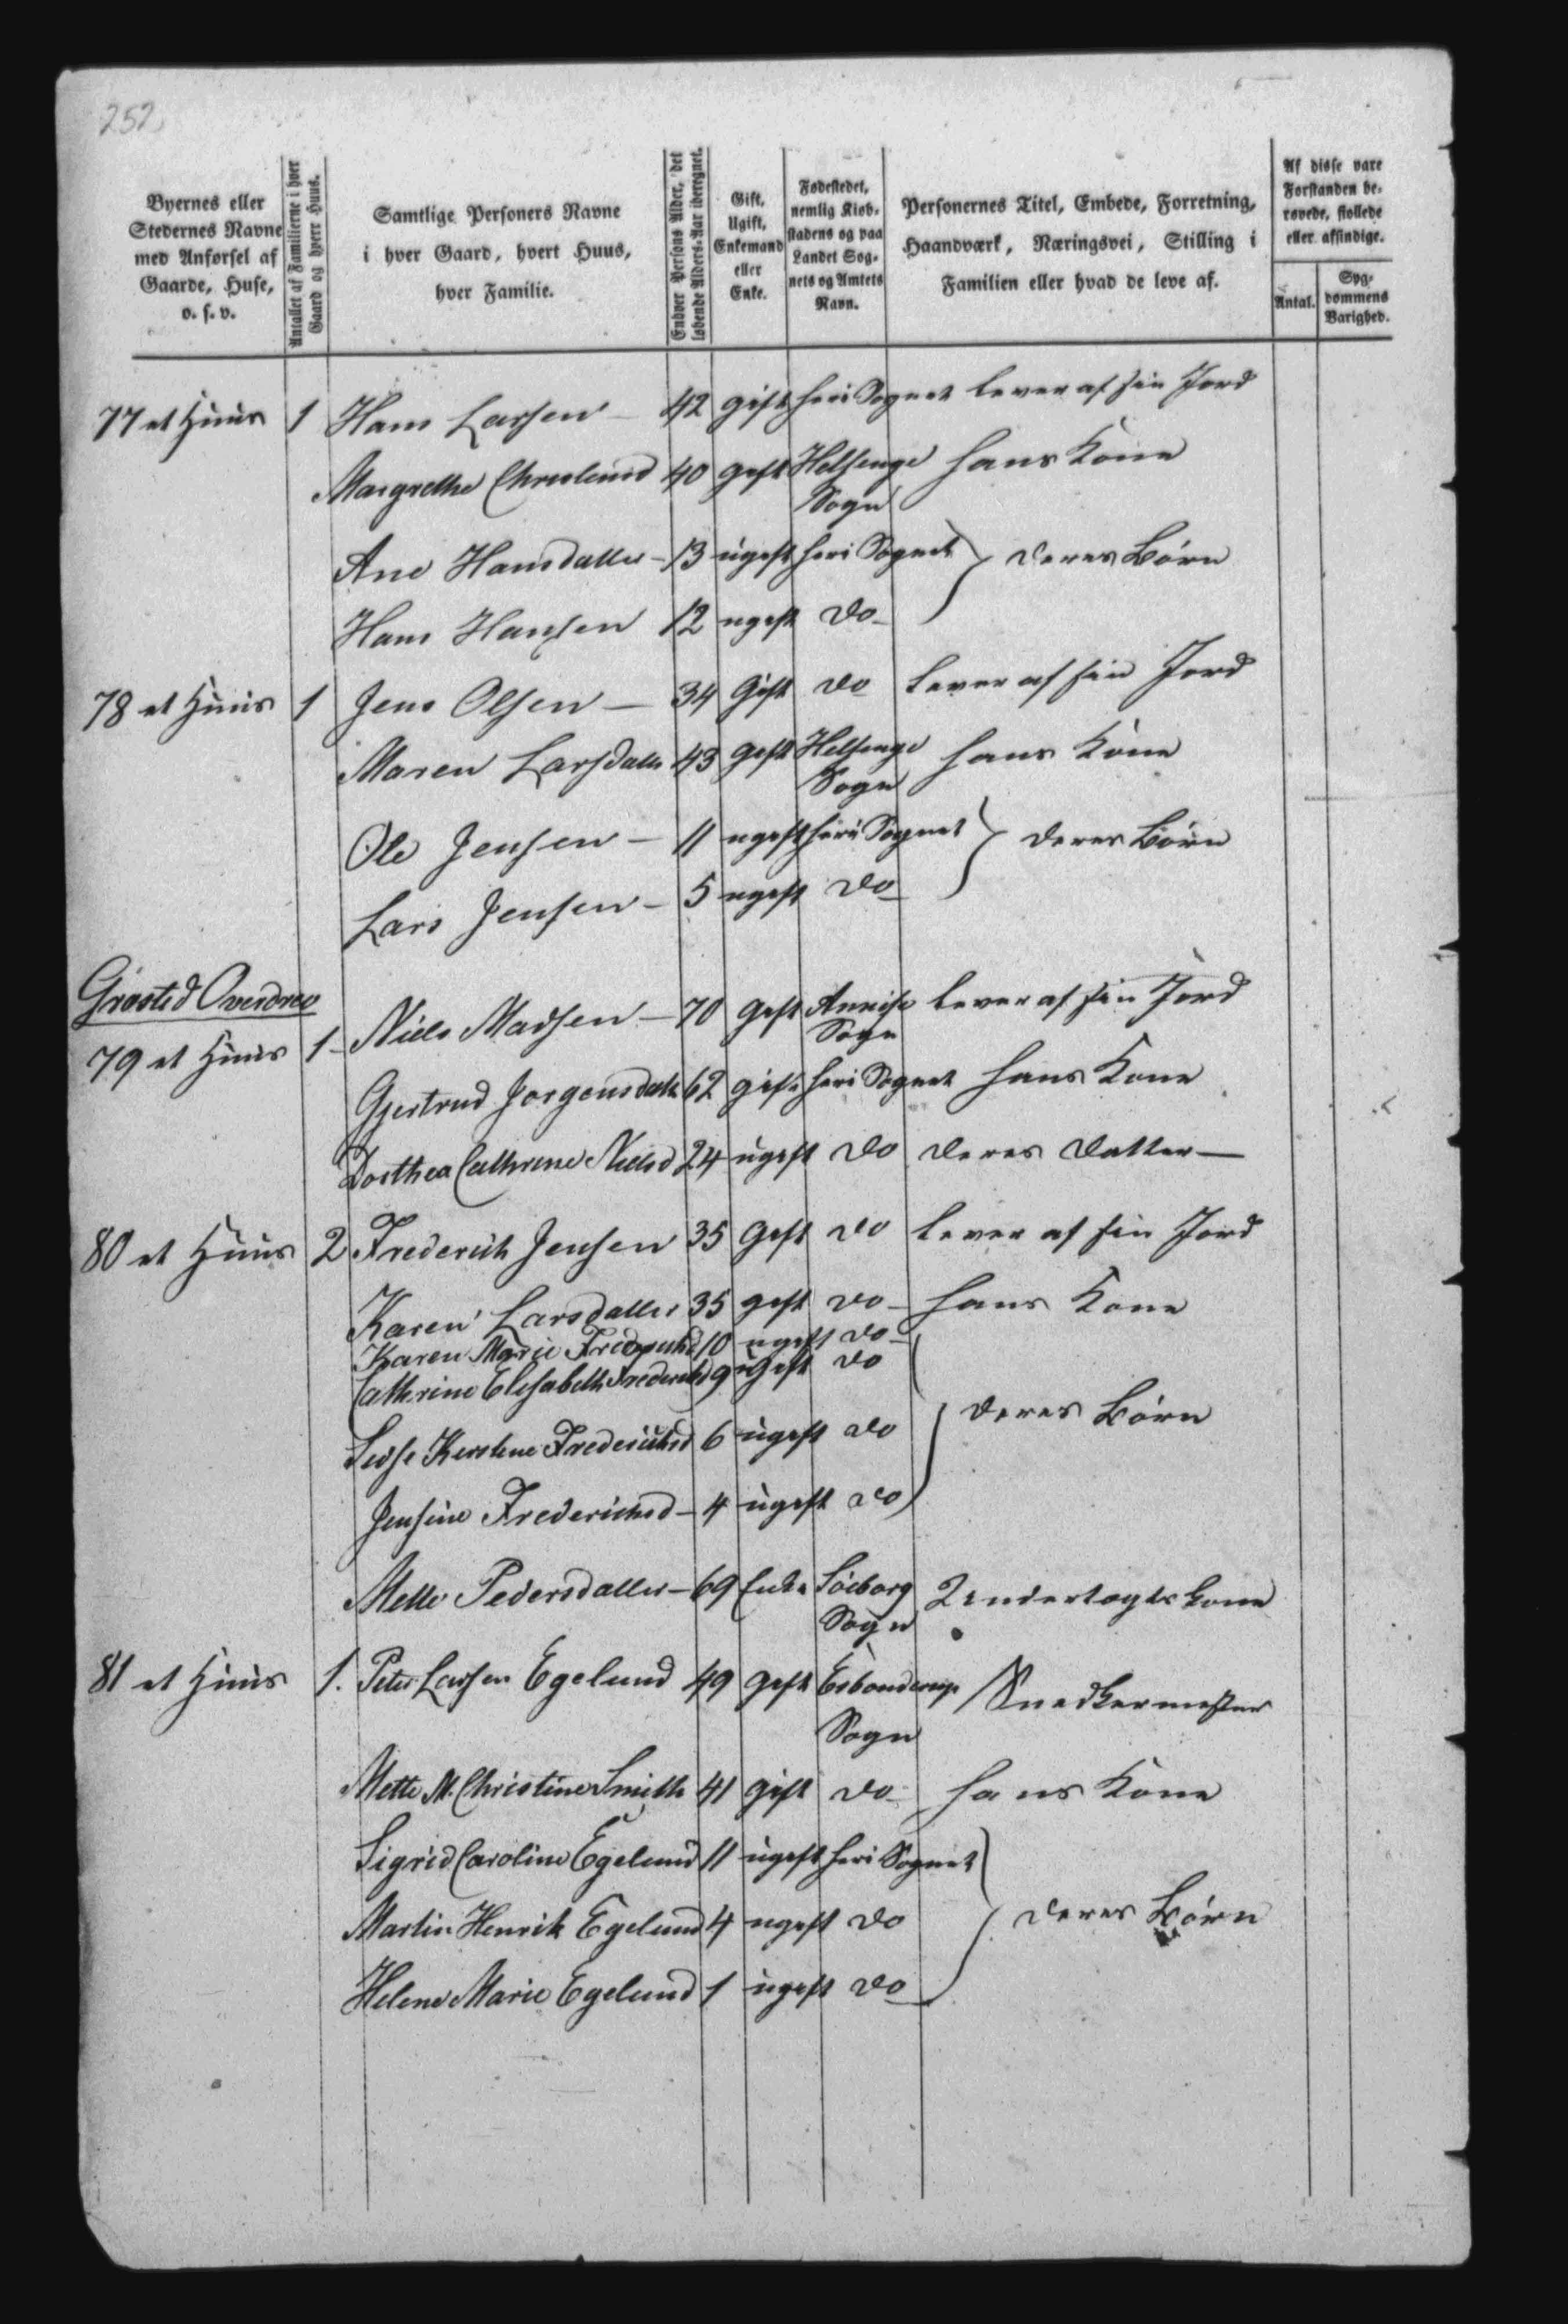 252
Byernes eller Stedernes Navne med Anførsel af Gaarde, Huse, o. s. v.
Antallet af Familierne i hver Gaard og hvert Huus.
Samtlige Personers Navne i hver Gaard, hvert Huus, hver Familie.
Enhver Persons Alder, det løbende Alders-Aar iberegnet.
Gift, Ugift, Enkemand eller Enke.
Fødestedet, nemlig Kiøbstadens og paa Landet Sognets og Amtets Navn.
Personernes Titel, Embede, Forretning, Haandværk, Næringsvei, Stilling i Familien eller hvad de leve af.
Af disse vare Forstanden berøvede, fiollede eller afsindige.
Antal.
Sygdommens Varighed.
77 et Huus 1 Hans Larsen — 42 gift heri Sognet Lever af sin Jord
Margrethe 40 gift Helsinge Sogn hans Kone
Ane Hansdatter - 13 ugift heri Sognet } deres Börn
Hans Hansen 12 ugift do -
78 et Huus 1 Jens Olsen — 34 Gift do Lever af sin Jord
Maren Larsdatter 43 gift Helsinge Sogn hans Kone
Ole Jensen — 11 ugift heri Sognet } deres Börn
Lars Jensen — 5 ugift do
Græsted Overdrev
79 et Huus 1 - Niels Madsen — 70 gift Annise Sogn Lever af sin Jord
Gjertrud Jorgensdatt 62 gift heri Sognet hans Kone
Dorthea Cathrine Nielsd 24 ugift do deres Datter —
80 et Huus 2 Frederich Jensen 35 gift do Lever af sin Jord
Karen Larsdatter 35 gift do - hans Kone
Karen Marie 10 ugift do -
Cathrine Elisabeth Frederichsd 9 ugift do
Sidse Kirstine Frederichsd 6 ugift do } deres Börn
Jensine Frederichsd - 4 ugift do
Mette Pedersdatter - 69 Enke Söeborg Sogn
81 et Huus 1. Peter Larsen Egelund 49 gift Esbonderup Sogn Snedkermester
Mette M. Christine Smith 41 gift do - hans Kone
Sigrid Caroline Egelund 11 ugift heri Sognet
Martin Henrik Egelund 4 ugift do } deres Börn
Helene Marie Egelund 1 ugift do